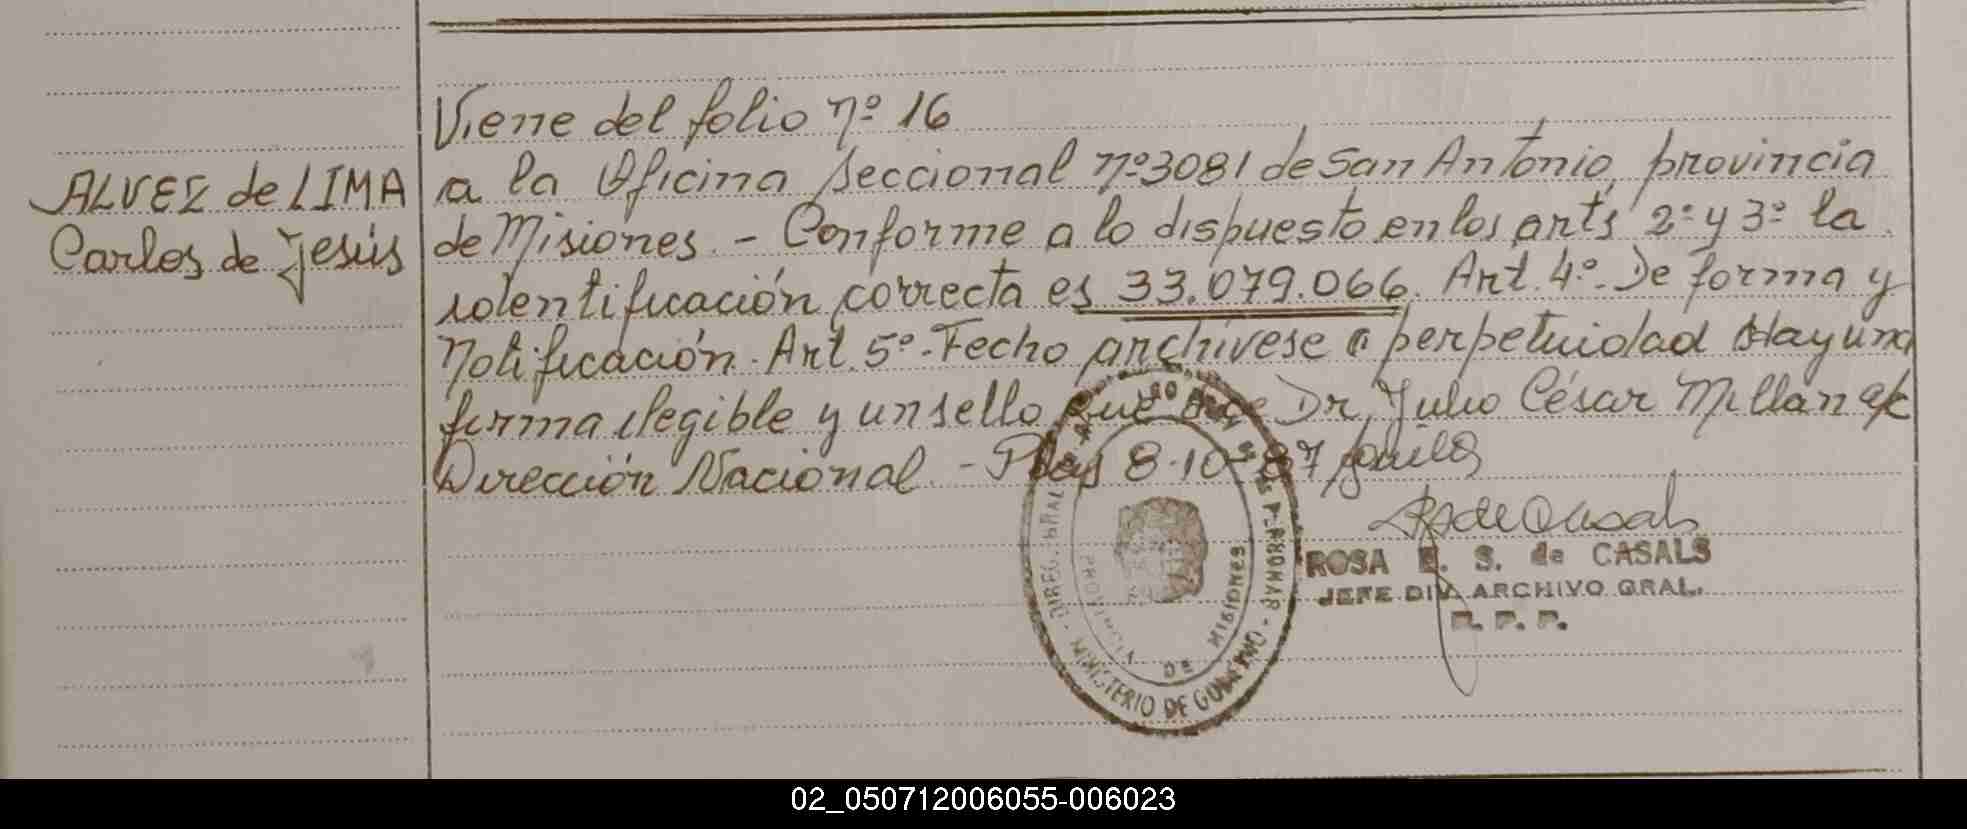 Viene del folio nº 16
ALVEZ de LIMA
Carlos de Jesús
a la Oficina Seccional nº 3081 de San Antonio, provincia
de Misiones. - Conforme a lo dispuesto en los arts 2º y 3º la
identificación correcta es 33.079.066. Art. 4º. De forma y
notificación. Art. 5º. Fecho archívese a perpetuidad Hay una
firma ilegible y un sello que dice Dr. Julio César Millan
Dirección Nacional. - Pdas 8-10-87
ROSA E. S. de CASALS
JEFE DIV. ARCHIVO GRAL.
R. P. P.
MINISTERIO DE GOBIERNO
DE MISIONES
02_050712006055-006023